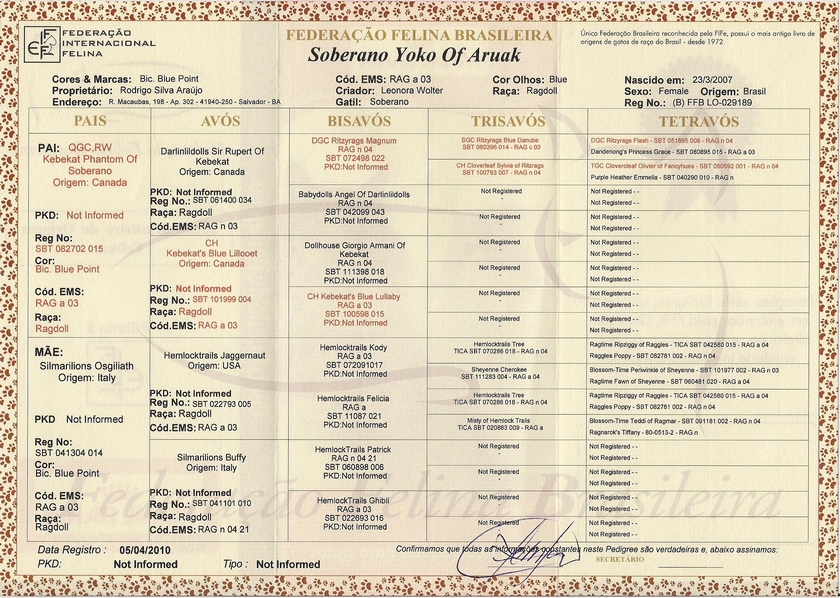 FEDERAÇÃO
INTERNACIONAL
FELINA
FEDERAÇÃO FELINA BRASILEIRA
Soberano Yoko Of Aruak
Única Federação Brasileira reconhecida pela FIFe, possui o mais antigo livro de
origens de gatos de raça do Brasil - desde 1972
Cores & Marcas: Bic. Blue Point
Proprietário: Rodrigo Silva Araújo
Endereço: R. Macaubas, 198 - Ap. 302 - 41940-250 - Salvador - BA
Cód. EMS: RAG a 03
Criador: Leonora Wolter
Gatil: Soberano
Cor Olhos: Blue
Raça: Ragdoll
Nascido em: 23/3/2007
Sexo: Female Origem: Brasil
Reg No.: (B) FFB LO-029189
PAIS
AVÓS
BISAVÓS
TRISAVÓS
TETRAVÓS
PAI: QGC,RW
Kebekat Phantom Of
Soberano
Origem: Canada
PKD: Not Informed
Reg No:
SBT 082702 015
Cor:
Bic. Blue Point
Cód. EMS:
RAG a 03
Raça:
Ragdoll
MÃE:
Silmarilions Osgiliath
Origem: Italy
PKD Not Informed
Reg No:
SBT 041304 014
Cor:
Bic. Blue Point
Cód. EMS:
RAG a 03
Raça:
Ragdoll
Darlinlildolls Sir Rupert Of
Kebekat
Origem: Canada
PKD: Not Informed
Reg No.: SBT 061400 034
Raça: Ragdoll
Cód.EMS: RAG n 03
CH
Kebekat's Blue Lillooet
Origem: Canada
PKD: Not Informed
Reg No.: SBT 101999 004
Raça: Ragdoll
Cód.EMS: RAG a 03
Hemlocktrails Jaggernaut
Origem: USA
PKD: Not Informed
Reg No.: SBT 022793 005
Raça: Ragdoll
Cód.EMS: RAG a 03
Silmarilions Buffy
Origem: Italy
PKD: Not Informed
Reg No.: SBT 041101 010
Raça: Ragdoll
Cód.EMS: RAG n 04 21
DGC Ritzyrags Magnum
RAG n 04
SBT 072498 022
PKD:Not Informed
Babydolls Angel Of Darlinlildolls
RAG n 04
SBT 042099 043
PKD:Not Informed
Dollhouse Giorgio Armani Of
Kebekat
RAG n 04
SBT 111398 018
PKD:Not Informed
CH Kebekat's Blue Lullaby
RAG a 03
SBT 100598 015
PKD:Not Informed
Hemlocktrails Kody
RAG a 03
SBT 072091017
PKD:Not Informed
Hemlocktrails Felicia
RAG a
SBT 11087 021
PKD:Not Informed
HemlockTrails Patrick
RAG n 04 21
SBT 060898 006
PKD:Not Informed
HemlockTrails Ghibli
RAG a 03
SBT 022693 016
PKD:Not Informed
SGC Ritzyrags Blue Danube
SBT 080396 014 - RAG c 03
CH Cloverleaf Sylvia of Ritzrags
SBT 100793 007 - RAG n 04
Not Registered
-
Not Registered
-
Not Registered
-
Not Registered
-
Not Registered
-
Not Registered
-
Hemlocktrails Tree
TICA SBT 070286 018 - RAG n 04
Sheyenne Cherokee
SBT 111283 004 - RAG a 04
Hemlocktrails Tree
TICA SBT 070286 018 - RAG n 04
Misty of Hemlock Trails
TICA SBT 020883 009 - RAG a
Not Registered
-
Not Registered
-
Not Registered
-
Not Registered
DGC Ritzyrags Flash - SBT 051895 008 - RAG n 04
Dandenong's Princess Grace - SBT 080895 015 - RAG a 03
TGC Clovercleaf Olivier of Fancyhues - SBT 050592 001 - RAG n 04
Purple Heather Emmelia - SBT 040290 010 - RAG n
Not Registered - -
Not Registered - -
Not Registered - -
Not Registered - -
Not Registered - -
Not Registered - -
Not Registered - -
Not Registered - -
Not Registered - -
Not Registered - -
Not Registered - -
Not Registered - -
Ragtime Ripziggy of Raggles - TICA SBT 042580 015 - RAG a 04
Raggles Poppy - SBT 082781 002 - RAG n 04
Blossom-Time Periwinkle of Sheyenne - SBT 101977 002 - RAG n 03
Ragtime Fawn of Sheyenne - SBT 060481 020 - RAG a 04
Ragtime Ripziggy of Raggles - TICA SBT 042580 015 - RAG a 04
Raggles Poppy - SBT 082781 002 - RAG n 04
Blossom-Time Teddi of Ragmar - SBT 091181 002 - RAG n 04
Ragnarok's Tiffany - 80-0513-2 - RAG n
Not Registered - -
Not Registered - -
Not Registered - -
Not Registered - -
Not Registered - -
Not Registered - -
Not Registered - -
Not Registered - -
Federação Felina Brasileira
Data Registro : 05/04/2010
PKD: Not Informed Tipo : Not Informed
Confirmamos que todas as informações constantes neste Pedigree são verdadeiras e, abaixo assinamos:
SECRETÁRIO